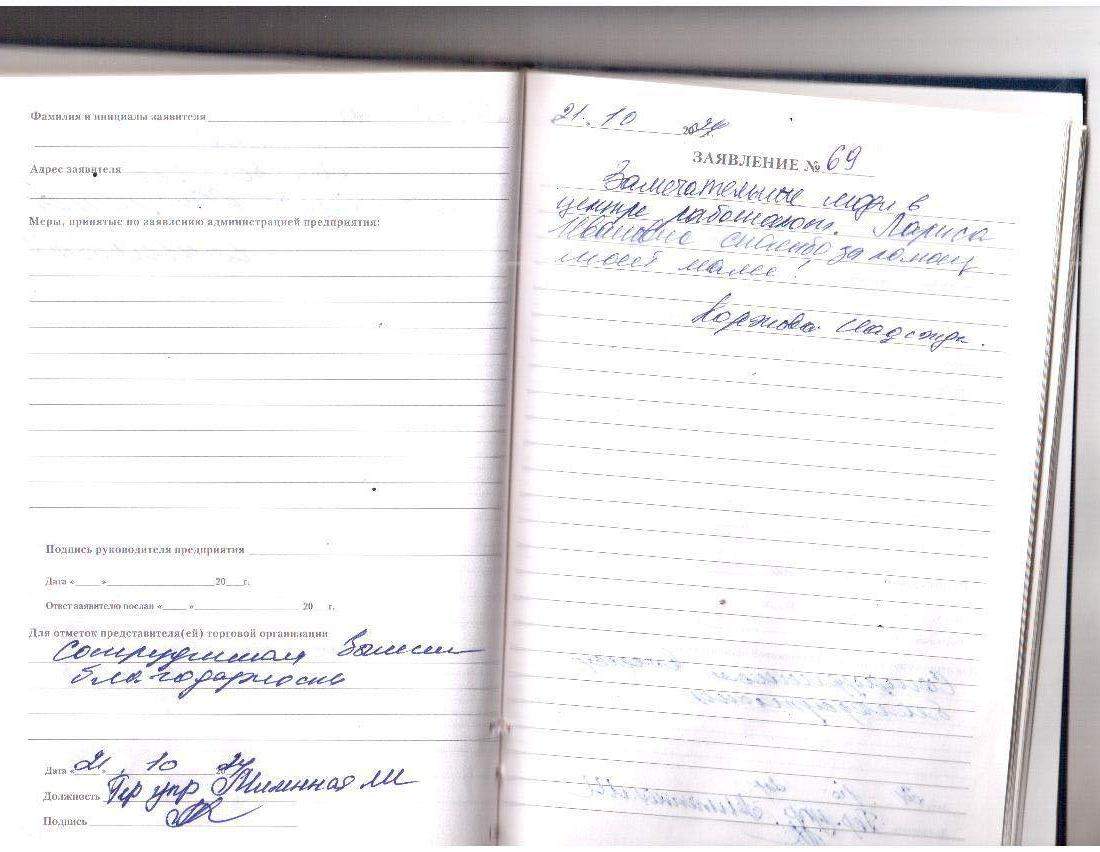 Фамилия и инициалы заявителя
Адрес заявителя
Меры, принятые по заявлению администрацией предприятия:
Подпись руководителя предприятия
Дата «  » 20 г.
Ответ заявителю послан «  » 20 г.
Для отметок представителя(ей) торговой организации
Сотрудникам
благодарность
Дата «21» 10 2024
Должность Тер упр
Подпись
21. 10 2024
ЗАЯВЛЕНИЕ № 69
Замечательные люди в
центре работают. Лариса
Ивановна спасибо за помощь
моей маме!